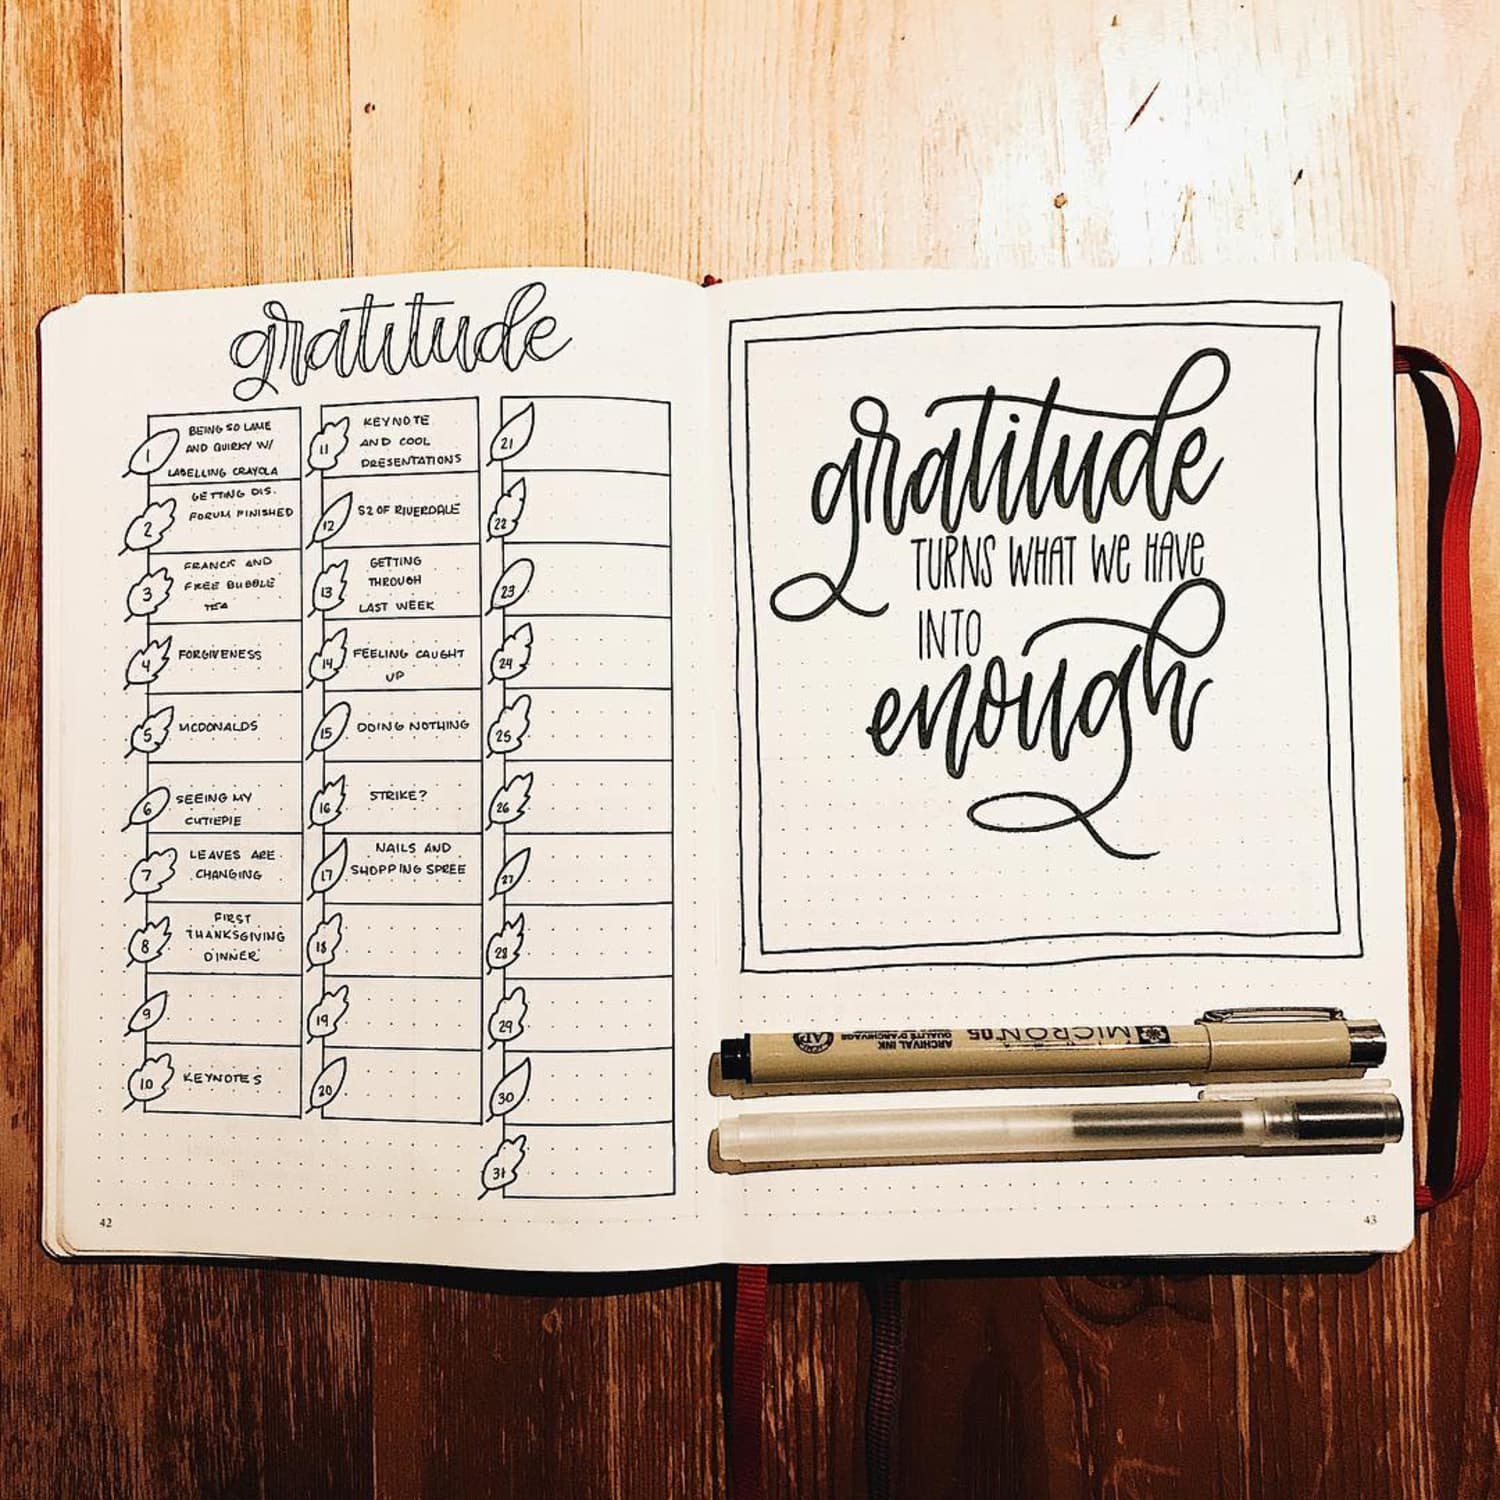 gratitude
1
BEING SO LAME
AND QUIRKY W/
LABELLING CRAYOLA
2
GETTING DIS.
FORUM FINISHED
3
FRANCIS AND
FREE BUBBLE
TEA
4
FORGIVENESS
5
MCDONALDS
6
SEEING MY
CUTIEPIE
7
LEAVES ARE
CHANGING
8
FIRST
THANKSGIVING
DINNER
9
10
KEYNOTES
11
KEYNOTE
AND COOL
PRESENTATIONS
12
S2 OF RIVERDALE
13
GETTING
THROUGH
LAST WEEK
14
FEELING CAUGHT
UP
15
DOING NOTHING
16
STRIKE?
17
NAILS AND
SHOPPING SPREE
18
19
20
21
22
23
24
25
26
27
28
29
30
31
42
gratitude
TURNS WHAT WE HAVE
INTO
enough
MICRON 05
ARCHIVAL INK
QUALITÉ D'ARCHIVAGE
AP
43